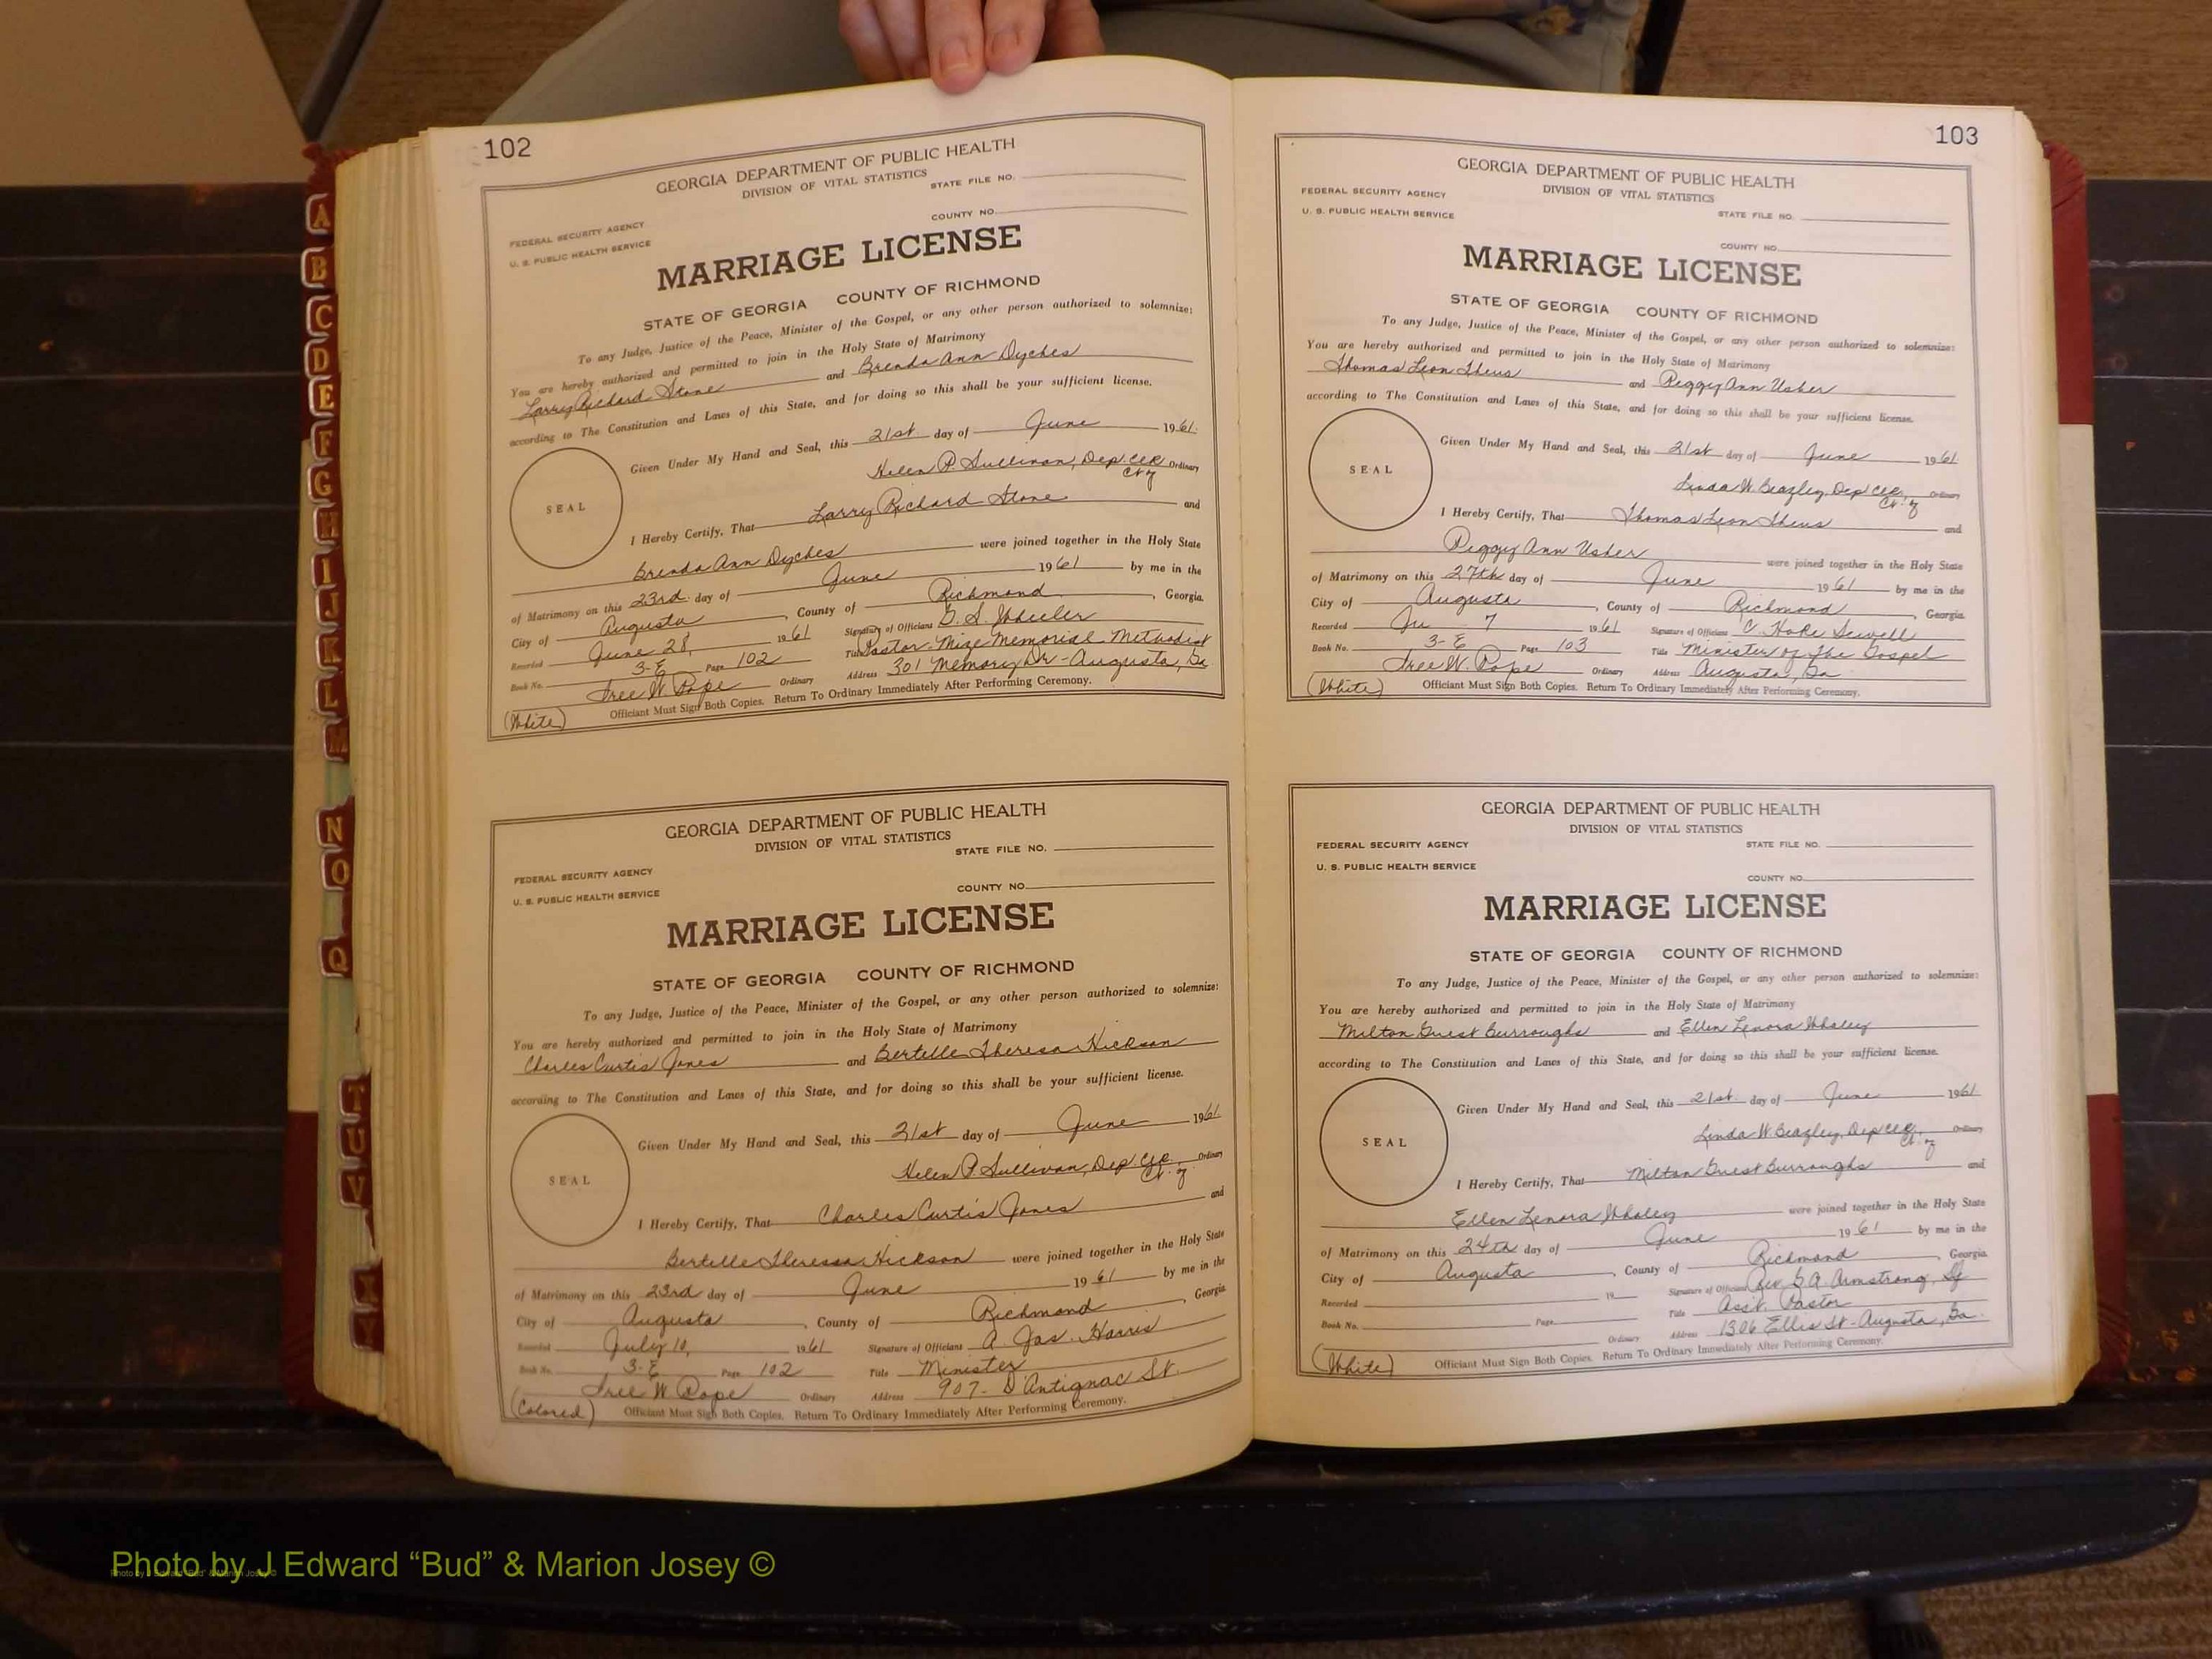 102
GEORGIA DEPARTMENT OF PUBLIC HEALTH
DIVISION OF VITAL STATISTICS
STATE FILE NO.
FEDERAL SECURITY AGENCY
COUNTY NO.
U. S. PUBLIC HEALTH SERVICE
MARRIAGE LICENSE
STATE OF GEORGIA COUNTY OF RICHMOND
To any Judge, Justice of the Peace, Minister of the Gospel, or any other person authorized to solemnize:
You are hereby authorized and permitted to join in the Holy State of Matrimony
Larry Richard Stone and Brenda Ann Dyches
according to The Constitution and Laws of this State, and for doing so this shall be your sufficient license.
Given Under My Hand and Seal, this 21st day of June 1961
Helen P. Sullivan, Dep. Clk. Ordinary
Ct. of
SEAL
I Hereby Certify, That Larry Richard Stone and
Brenda Ann Dyches were joined together in the Holy State
of Matrimony on this 23rd day of June 1961 by me in the
City of Augusta, County of Richmond, Georgia.
Recorded June 28, 1961 Signature of Officiant G. S. Wheeler
Book No. 3-E Page 102 Title Pastor - Mize Memorial Methodist
Tree W. Pope Ordinary Address 301 Memory Dr - Augusta, Ga
(White) Officiant Must Sign Both Copies. Return To Ordinary Immediately After Performing Ceremony.
GEORGIA DEPARTMENT OF PUBLIC HEALTH
DIVISION OF VITAL STATISTICS
STATE FILE NO.
FEDERAL SECURITY AGENCY
COUNTY NO.
U. S. PUBLIC HEALTH SERVICE
MARRIAGE LICENSE
STATE OF GEORGIA COUNTY OF RICHMOND
To any Judge, Justice of the Peace, Minister of the Gospel, or any other person authorized to solemnize:
You are hereby authorized and permitted to join in the Holy State of Matrimony
Charles Curtis Jones and Bertelle Theresa Hickson
according to The Constitution and Laws of this State, and for doing so this shall be your sufficient license.
Given Under My Hand and Seal, this 21st day of June 1961
Helen P. Sullivan, Dep. Clk. Ordinary
Ct. of
SEAL
I Hereby Certify, That Charles Curtis Jones and
Bertelle Theressa Hickson were joined together in the Holy State
of Matrimony on this 23rd day of June 1961 by me in the
City of Augusta, County of Richmond, Georgia
Recorded July 10, 1961 Signature of Officiant A. Jas. Harris
Book No. 3-E Page 102 Title Minister
Tree W Pope Ordinary Address 907- D'Antignac St.
(Colored) Officiant Must Sign Both Copies. Return To Ordinary Immediately After Performing Ceremony.
103
GEORGIA DEPARTMENT OF PUBLIC HEALTH
FEDERAL SECURITY AGENCY DIVISION OF VITAL STATISTICS
U. S. PUBLIC HEALTH SERVICE STATE FILE NO.
COUNTY NO.
MARRIAGE LICENSE
STATE OF GEORGIA COUNTY OF RICHMOND
To any Judge, Justice of the Peace, Minister of the Gospel, or any other person authorized to solemnize:
You are hereby authorized and permitted to join in the Holy State of Matrimony
Thomas Leon Theus and Peggy Ann Usher
according to The Constitution and Laws of this State, and for doing so this shall be your sufficient license.
Given Under My Hand and Seal, this 21st day of June 1961
Linda W. Beazley, Dep Clk. Ordinary
Ct. of
SEAL
I Hereby Certify, That Thomas Leon Theus and
Peggy Ann Usher were joined together in the Holy State
of Matrimony on this 27th day of June 1961 by me in the
City of Augusta, County of Richmond, Georgia
Recorded Ju 7 1961 Signature of Officiant C. Hoke Sewell
Book No. 3-E Page 103 Title Minister of the Gospel
Tree W. Pope Ordinary Address Augusta, Ga.
(White) Officiant Must Sign Both Copies. Return To Ordinary Immediately After Performing Ceremony.
GEORGIA DEPARTMENT OF PUBLIC HEALTH
DIVISION OF VITAL STATISTICS
FEDERAL SECURITY AGENCY STATE FILE NO.
U. S. PUBLIC HEALTH SERVICE
COUNTY NO.
MARRIAGE LICENSE
STATE OF GEORGIA COUNTY OF RICHMOND
To any Judge, Justice of the Peace, Minister of the Gospel, or any other person authorized to solemnize:
You are hereby authorized and permitted to join in the Holy State of Matrimony
Milton Guest Burroughs and Ellen Lenora Whaley
according to The Constitution and Laws of this State, and for doing so this shall be your sufficient license.
Given Under My Hand and Seal, this 21st day of June 1961
Linda W Beazley, Dep Clk. Ordinary
Ct. of
SEAL
I Hereby Certify, That Milton Guest Burroughs and
Ellen Lenora Whaley were joined together in the Holy State
of Matrimony on this 24th day of June 1961 by me in the
City of Augusta, County of Richmond, Georgia
Recorded 19 Signature of Officiant Rev. G. A. Armstrong,
Book No. Page Title Asst. Pastor
Ordinary Address 1306 Ellis St - Augusta, Ga.
(White) Officiant Must Sign Both Copies. Return To Ordinary Immediately After Performing Ceremony.
A
B
C
D
E
F
G
H
I
J
K
L
M
N
O
Q
T
U
V
Photo by J Edward “Bud” & Marion Josey ©
Photo by J Edward “Bud” & Marion Josey ©